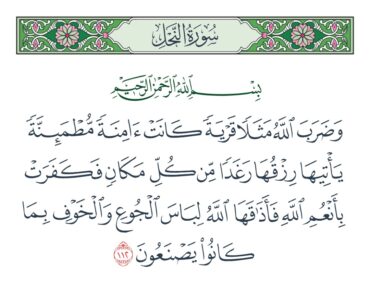 سُورَةُ النَّحْلِ
بِسْمِ اللَّهِ الرَّحْمَٰنِ الرَّحِيمِ
وَضَرَبَ ٱللَّهُ مَثَلٗا قَرۡيَةٗ كَانَتۡ ءَامِنَةٗ مُّطۡمَئِنَّةٗ
يَأۡتِيهَا رِزۡقُهَا رَغَدٗا مِّن كُلِّ مَكَانٖ فَكَفَرَتۡ
بِأَنۡعُمِ ٱللَّهِ فَأَذَٰقَهَا ٱللَّهُ لِبَاسَ ٱلۡجُوعِ وَٱلۡخَوۡفِ بِمَا
كَانُواْ يَصۡنَعُونَ ١١٢